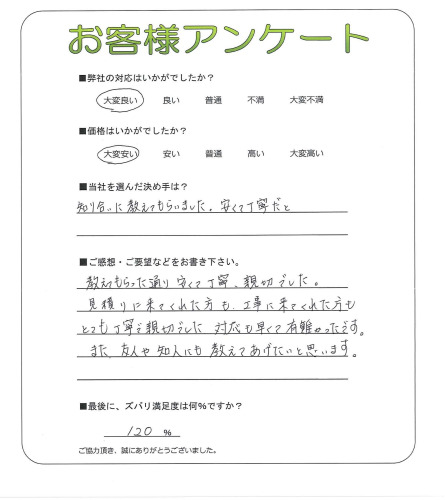 お客様アンケート
■弊社の対応はいかがでしたか？
大変良い 良い 普通 不満 大変不満
■価格はいかがでしたか？
大変安い 安い 普通 高い 大変高い
■当社を選んだ決め手は？
知り合いに教えてもらいました。安くて丁寧だと
■ご感想・ご要望などをお書き下さい。
教えてもらった通り安くて丁寧、親切でした。
見積りに来てくれた方も、工事に来てくれた方も
とても丁寧で親切でした 対応も早くて有難かったです。
また、友人や知人にも教えてあげたいと思います。
■最後に、ズバリ満足度は何%ですか？
120 %
ご協力頂き、誠にありがとうございました。